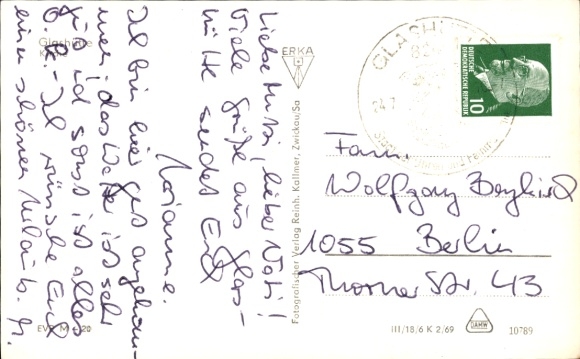 Liebe Mutti, lieber Vati!
Viele Grüße aus Glas-
hütte sendet Euch
Marianne.
Ich bin hier gut angekom-
men, das Wetter ist sehr
gut und sonst ist alles
o.k. Ich wünsche Euch
einen schönen Urlaub.
Glashütte
ERKA
Fotografischer Verlag Reinh. Kallmer, Zwickau/Sa
GLASHÜTTE
24.7
DEUTSCHE
DEMOKRATISCHE REPUBLIK
10
Fam.
Wolfgang
1055 Berlin
Thorner Str. 43
EVP M -.20
III/18/6 K 2/69
DAMW
10789